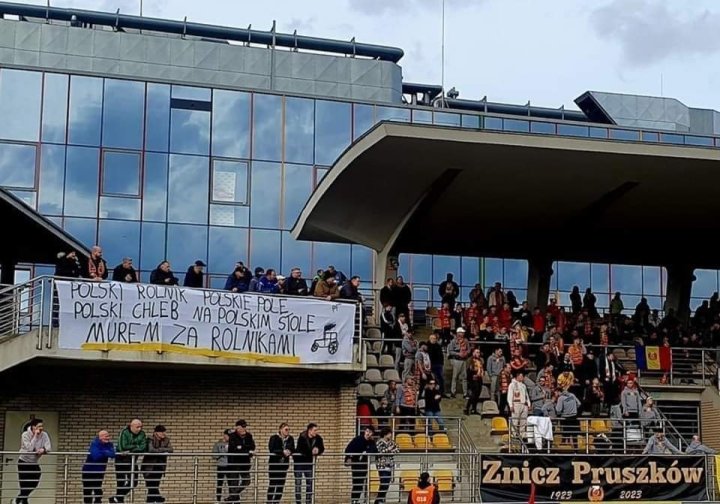 POLSKI ROLNIK POLSKIE POLE
POLSKI CHLEB NA POLSKIM STOLE
MUREM ZA ROLNIKAMI
Znicz Pruszków
1923
2023